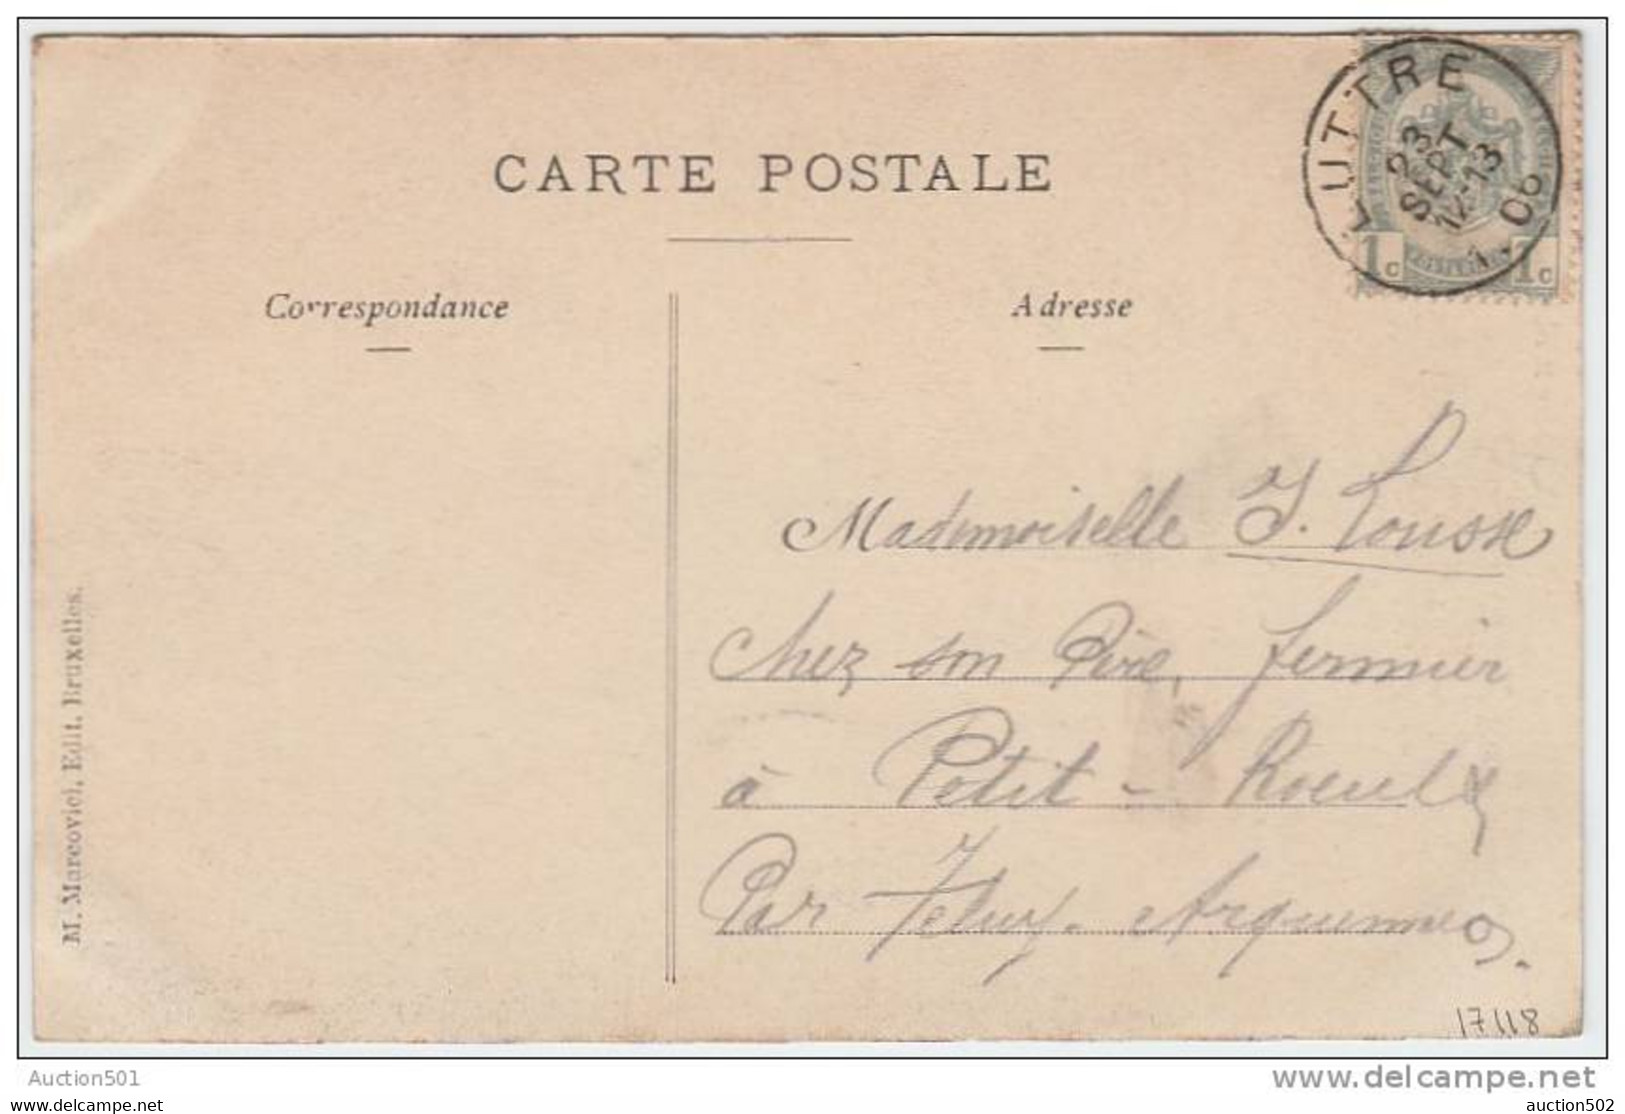 CARTE POSTALE
LUTTRE
23
SEPT
12-13
06
1c 1c
Correspondance
Adresse
Mademoiselle J. Rousse
chez son Père, fermier
à Petit-Roeulx
Par Feluy-Arquennes.
M. Marcovici, Edit. Bruxelles.
17118
Auction501
www.delcampe.net
auction501
auction502